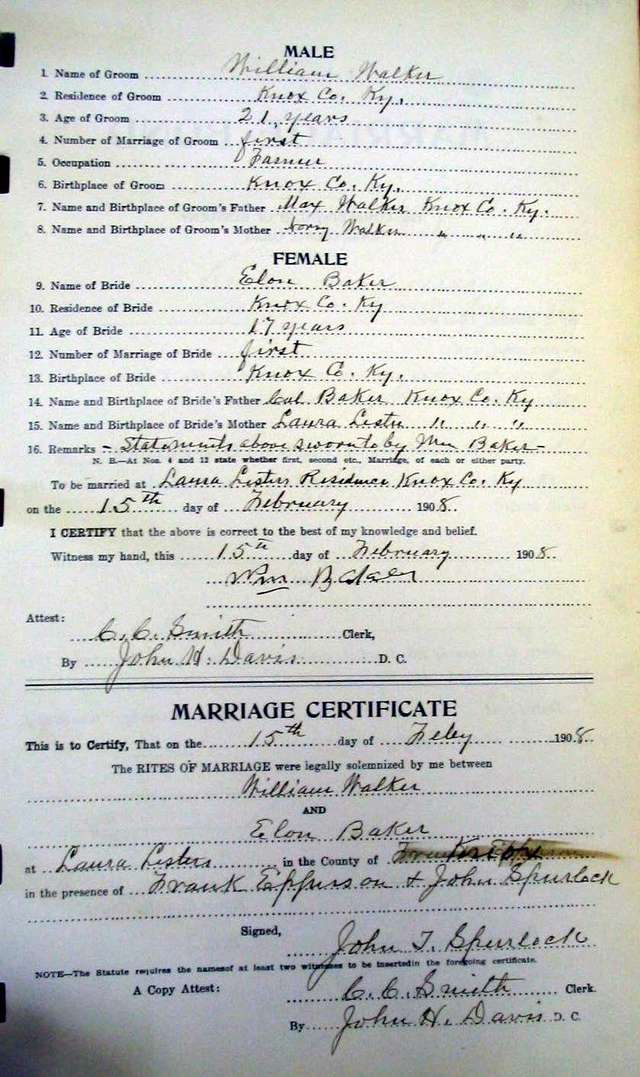 MALE
1. Name of Groom William Walker
2. Residence of Groom Knox Co. Ky.
3. Age of Groom 21 years
4. Number of Marriage of Groom first
5. Occupation Farmer
6. Birthplace of Groom Knox Co. Ky.
7. Name and Birthplace of Groom's Father Max Walker Knox Co. Ky.
8. Name and Birthplace of Groom's Mother Walker " " "
FEMALE
9. Name of Bride Elon Baker
10. Residence of Bride Knox Co. Ky
11. Age of Bride 17 years
12. Number of Marriage of Bride first
13. Birthplace of Bride Knox Co. Ky.
14. Name and Birthplace of Bride's Father Cal Baker Knox Co. Ky
15. Name and Birthplace of Bride's Mother Laura Lester " " "
16. Remarks - Statements above sworn to by Wm Baker -
N. B.—At Nos. 4 and 12 state whether first, second etc., Marriage, of each or either party.
To be married at Laura Lesters Residence Knox Co. Ky
on the 15th day of February 1908
I CERTIFY that the above is correct to the best of my knowledge and belief.
Witness my hand, this 15th day of February 1908
Wm Baker
Attest:
C. C. Smith Clerk,
By John H. Davis D. C.
MARRIAGE CERTIFICATE
This is to Certify, That on the 15th day of Feby 1908
The RITES OF MARRIAGE were legally solemnized by me between
William Walker
AND
Elon Baker
at Laura Lesters in the County of
in the presence of Frank Epperson & John Spurlock
Signed,
John T. Spurlock
NOTE—The Statute requires the names of at least two witnesses to be inserted in the foregoing certificate.
A Copy Attest: C. C. Smith Clerk.
By John H. Davis D. C.